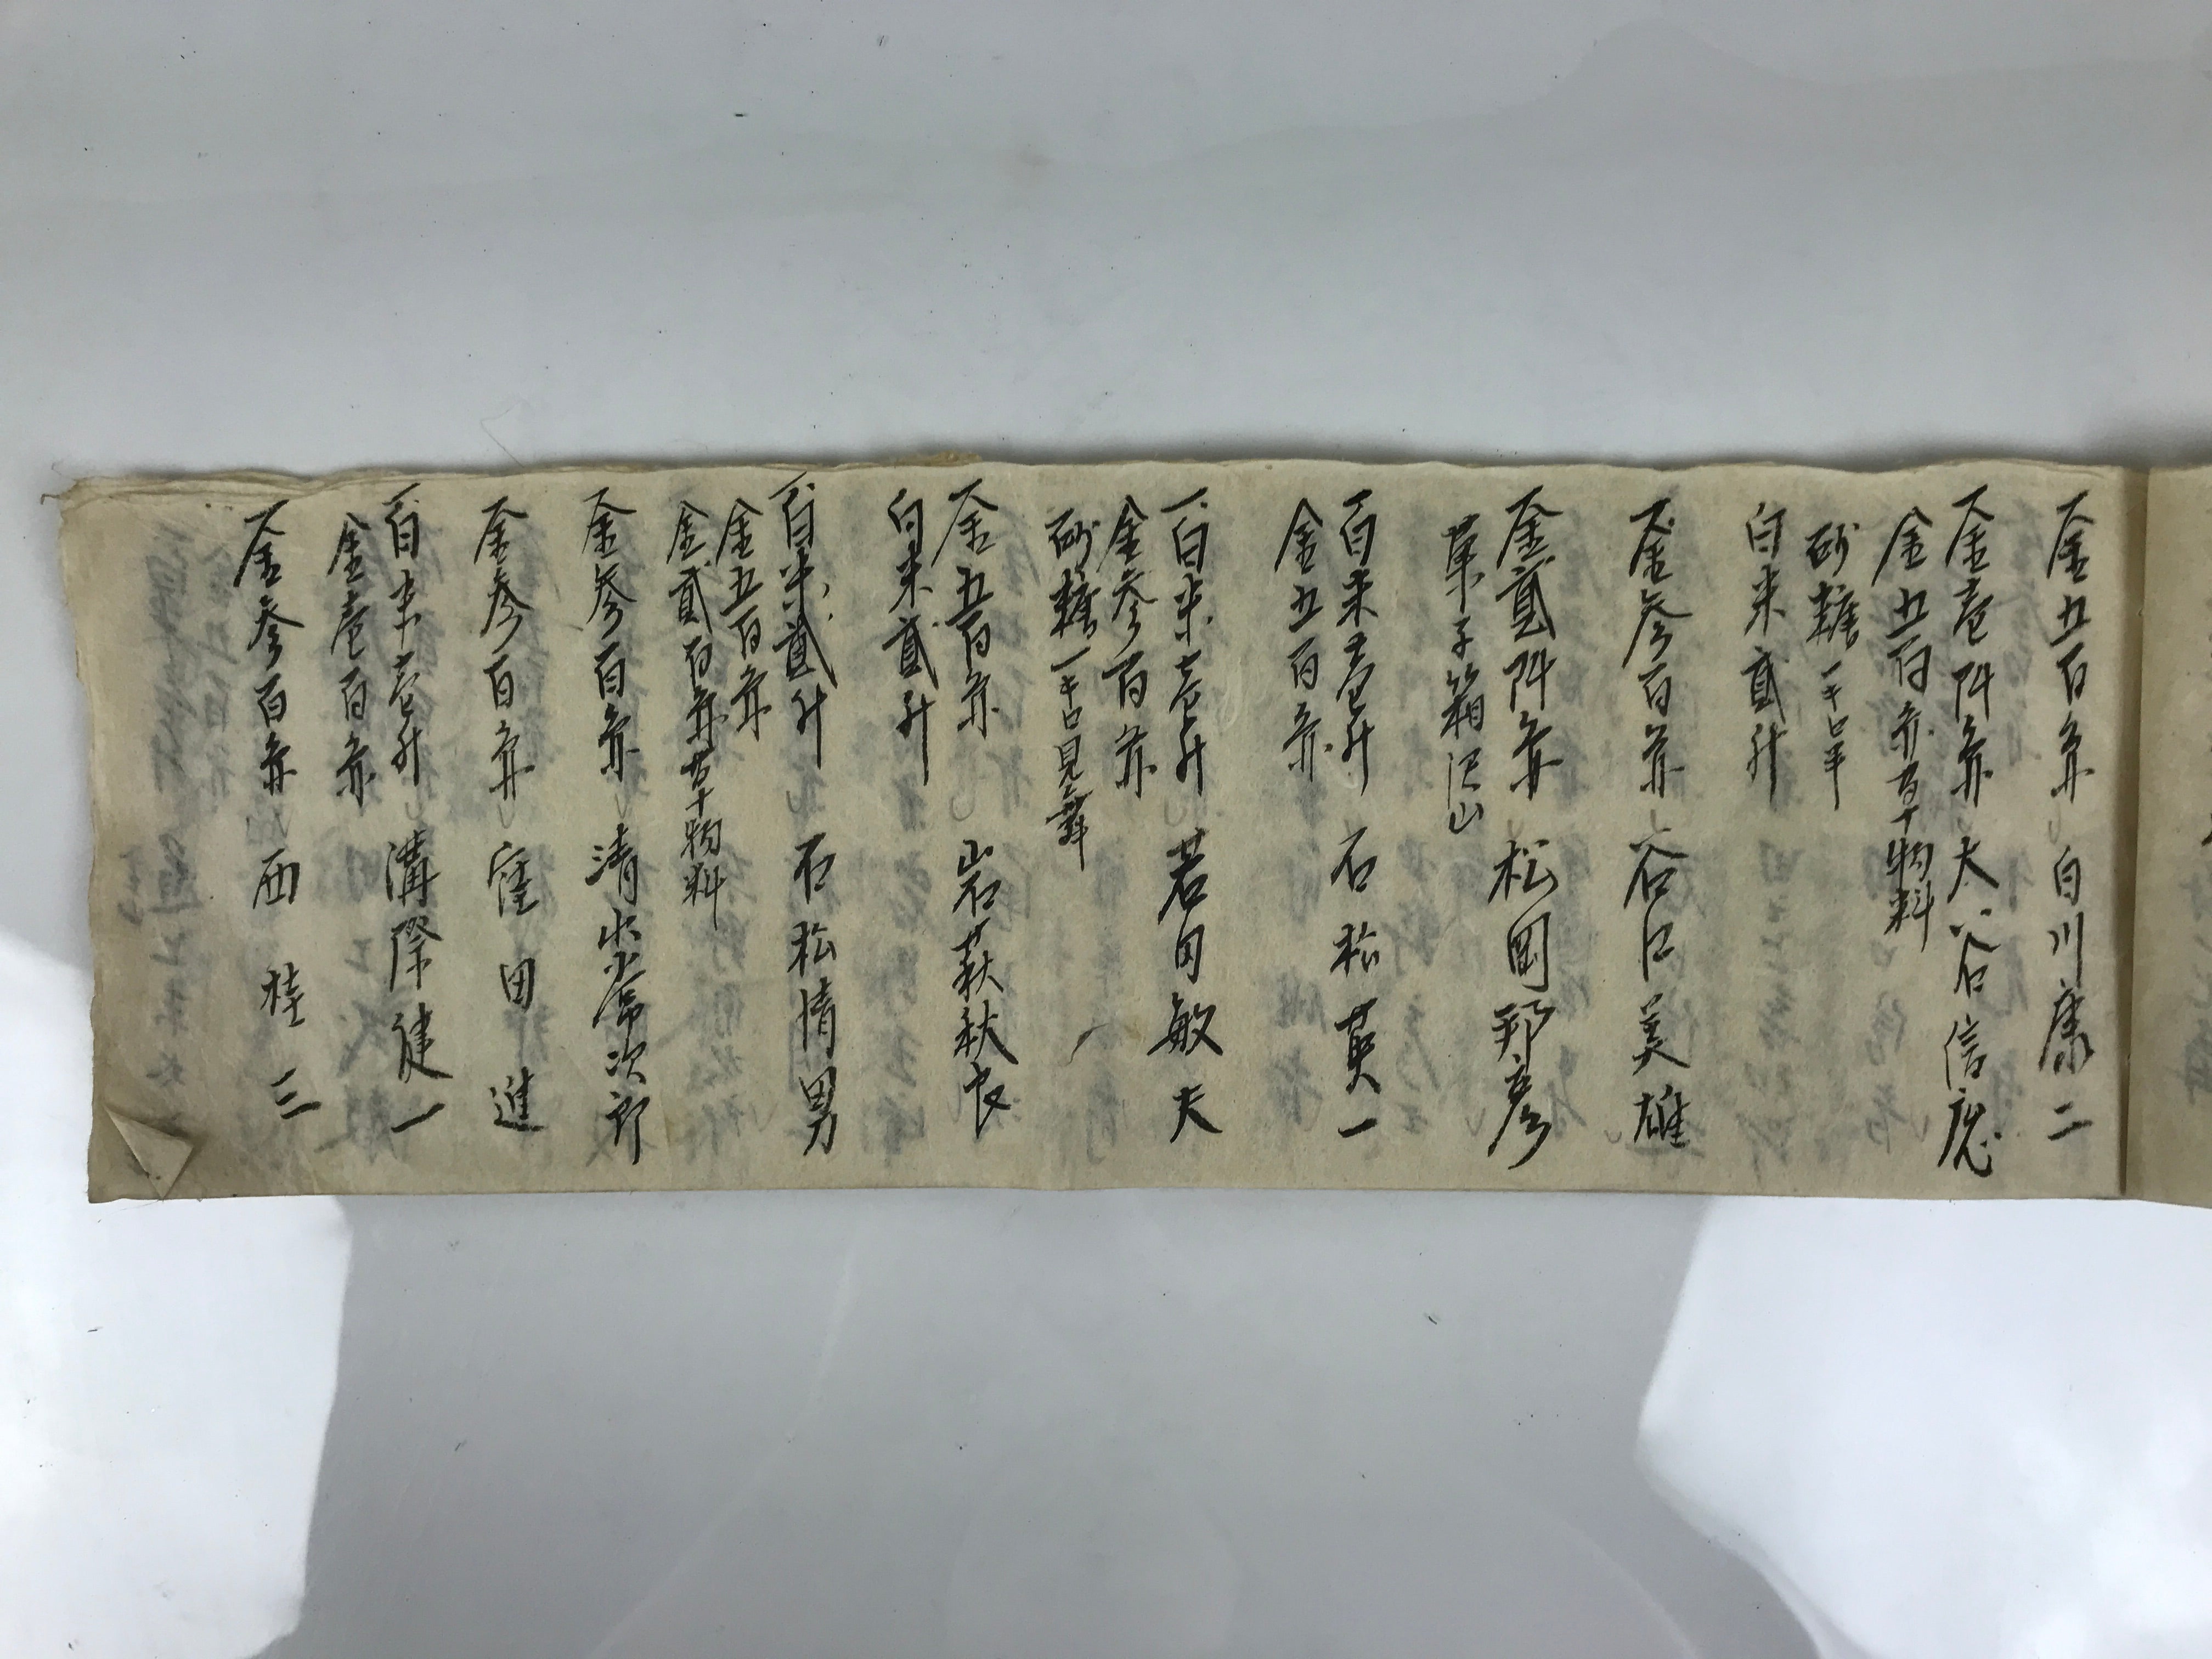 一金五百円 白川康二
一金壱阡円 大谷信應
金五百円 草物料
砂糖一キロ半
白米貳升
一金参百円 谷口美雄
一金貳阡円 松岡邦彦
菓子箱沢山
一白米壱升 石松英一
金五百円
一白米壱升 若田敏夫
金参百円
砂糖一キロ見舞
一金五百円 岩萩秋良
白米貳升
一白米貳升 石松情男
金五百円
金貳百円 草物料
一金参百円 清水常次郎
一金参百円 窪田進
一白米壱升 溝際健一
金壱百円
一金参百円 西桂三